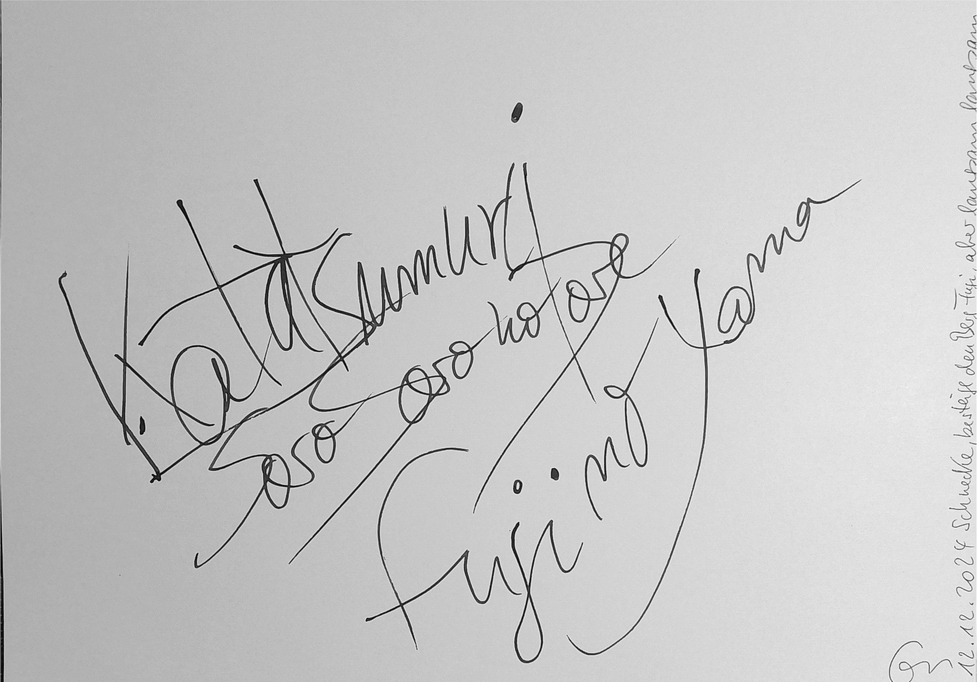 Katatsumuri
Soso soso no ore
Fuji no Yama
12.12.2024 Schnecke, besteige den Berg Fuji aber langsam langsam